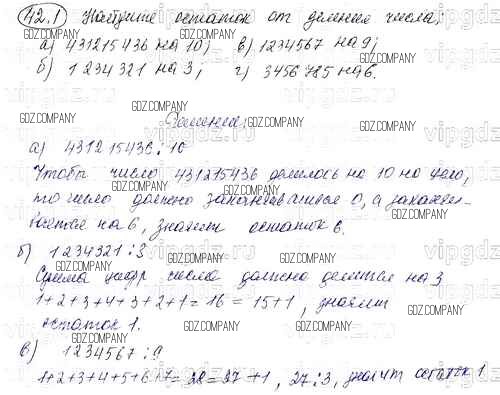 42.1 Найдите остаток от деления числа:
а) 431215436 на 10; в) 1234567 на 9;
б) 1234321 на 3; г) 3456785 на 6.
Решение:
а) 431215436 : 10
Чтобы число 431215436 делилось на 10 на цело,
то число должно заканчиваться 0, а заканчи-
вается на 6, значит остаток 6.
б) 1234321 : 3
Сумма цифр числа должно делится на 3
1+2+3+4+3+2+1=16=15+1, значит
остаток 1.
в) 1234567 : 9
1+2+3+4+5+6+7=28=27+1, 27:3, значит остаток 1